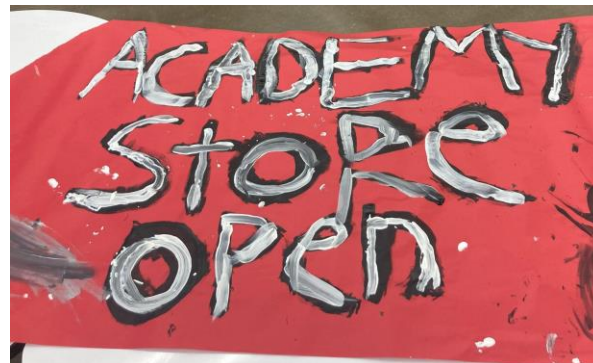 ACADEMY
StoRe
open